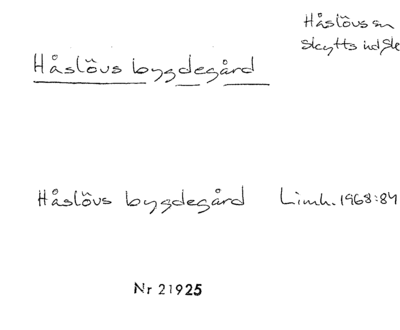 Håslövs sn
Skytts hd Sk
Håslövs bygdegård
Håslövs bygdegård Limh. 1968:84
Nr 21925